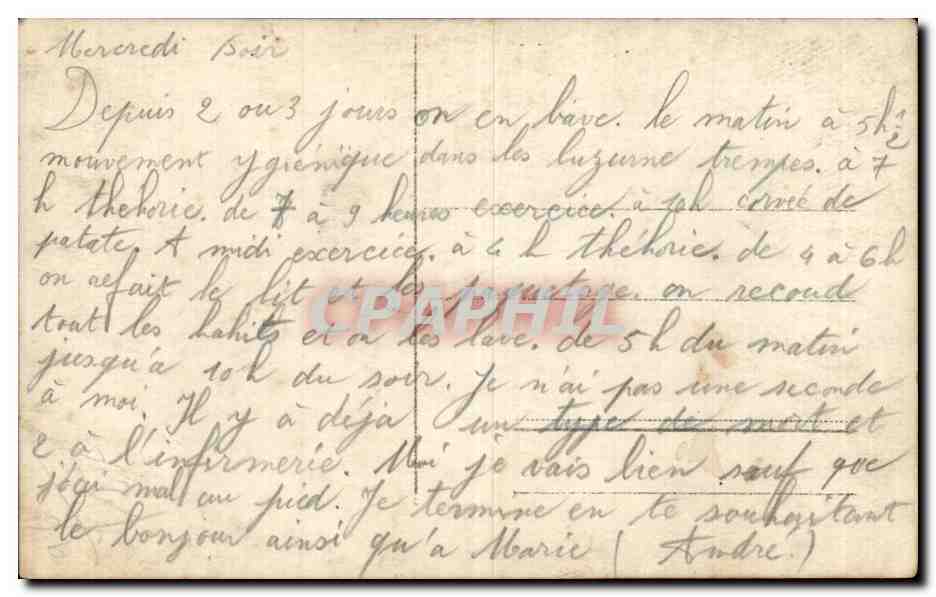 Mercredi soir
Depuis 2 ou 3 jours on en bave. le matin à 5h 1/2
mouvement ygiénique dans les luzurne trempés. à 7
h théhorie. de 7 à 9 heures exercice. à 10h corvée de
patate. A midi exercice. à 4 h théhorie. de 4 à 6h
on refait le lit et les paquetage. on recoud
tout les habits et on les lave. de 5h du matin
jusqu'a 10h du soir. Je n'ai pas une seconde
à moi. Il y à déja un type de mort et
2 à l'infirmerie. Moi je vais bien sauf que
j'ai mal au pied. Je termine en te souhaitant
le bonjour ainsi qu'a Marie (André.)
CPAPHIL